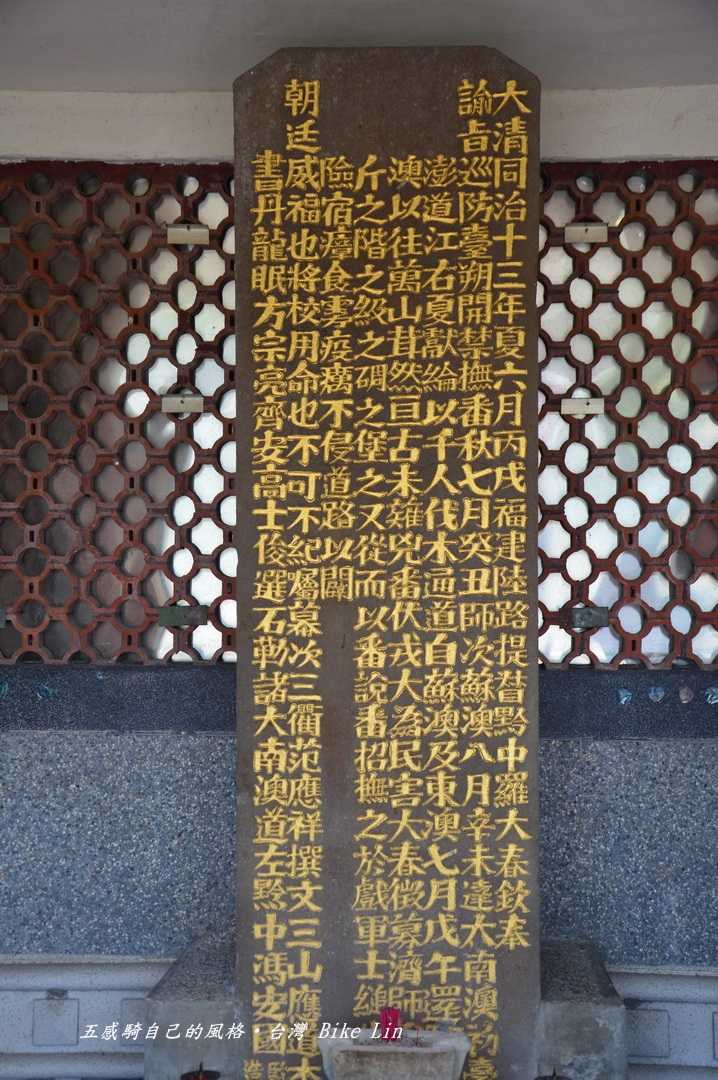 大清同治十三年夏六月丙戌福建陸路提督黔中羅大春欽奉
諭旨巡防臺朔開禁撫番秋七月癸丑師次蘇澳八月辛未達大南澳初臺
澎道江右夏獻綸以千人伐木通道自蘇澳及東澳七月戊午還
澳以往萬山茸然亘古未薙兇番伏戎大為民害大春徵募濟師
斤之階之級之碉之堡之又從而以番說番招撫之於戲軍士縋
險宿瘴食雾疫癘不侵道路以闢
朝廷威福也將校用命也不可不紀屬幕次三衢范應祥撰文三山應
書丹龍眠方宗亮齊安高士俊選石勒諸大南澳道左黔中馮安國監造
五感騎自己的風格·台灣 Bike Lin